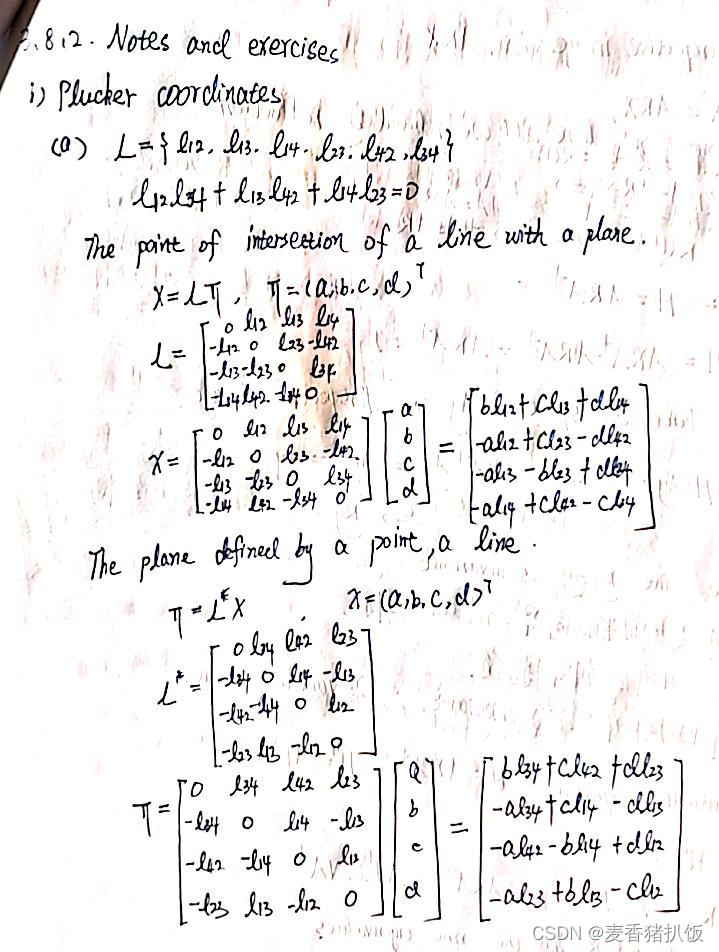 3.8.2. Notes and exercises
i) Plucker coordinates
(a) L={l12. l13. l14. l23. l42, l34}
l12l34 + l13l42 + l14l23=0
The point of intersection of a line with a plane.
X=Lπ, π=(a,b,c,d)^T
L= [0 l12 l13 l14
-l12 0 l23 -l42
-l13 -l23 0 l34
-l14 l42 -l34 0]
X= [0 l12 l13 l14
-l12 0 l23 -l42
-l13 -l23 0 l34
-l14 l42 -l34 0] [a
b
c
d] = [bl12+cl13+dl14
-al12+cl23-dl42
-al13-bl23+dl34
-al14+cl42-cl34]
The plane defined by a point, a line.
π=L*X X=(a,b,c,d)^T
L*= [0 l34 l42 l23
-l34 0 l14 -l13
-l42 -l14 0 l12
-l23 l13 -l12 0]
π= [0 l34 l42 l23
-l34 0 l14 -l13
-l42 -l14 0 l12
-l23 l13 -l12 0] [a
b
c
d] = [bl34+cl42+dl23
-al34+cl14-dl13
-al42-bl14+dl12
-al23+bl13-cl12]
CSDN @麦香猪扒饭